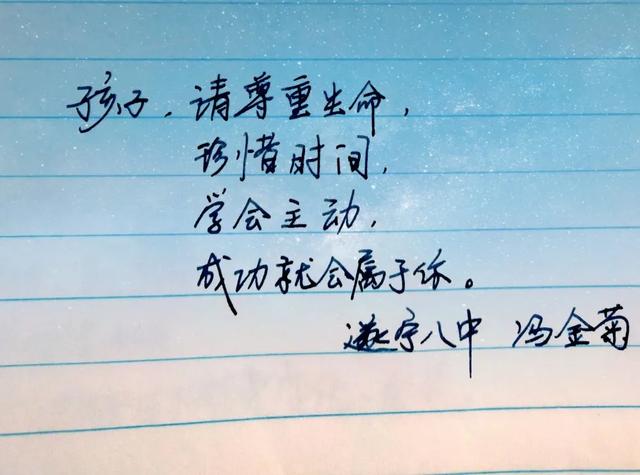 孩子，请尊重生命，
珍惜时间，
学会主动，
成功就会属于你。
遂宁八中 冯金菊